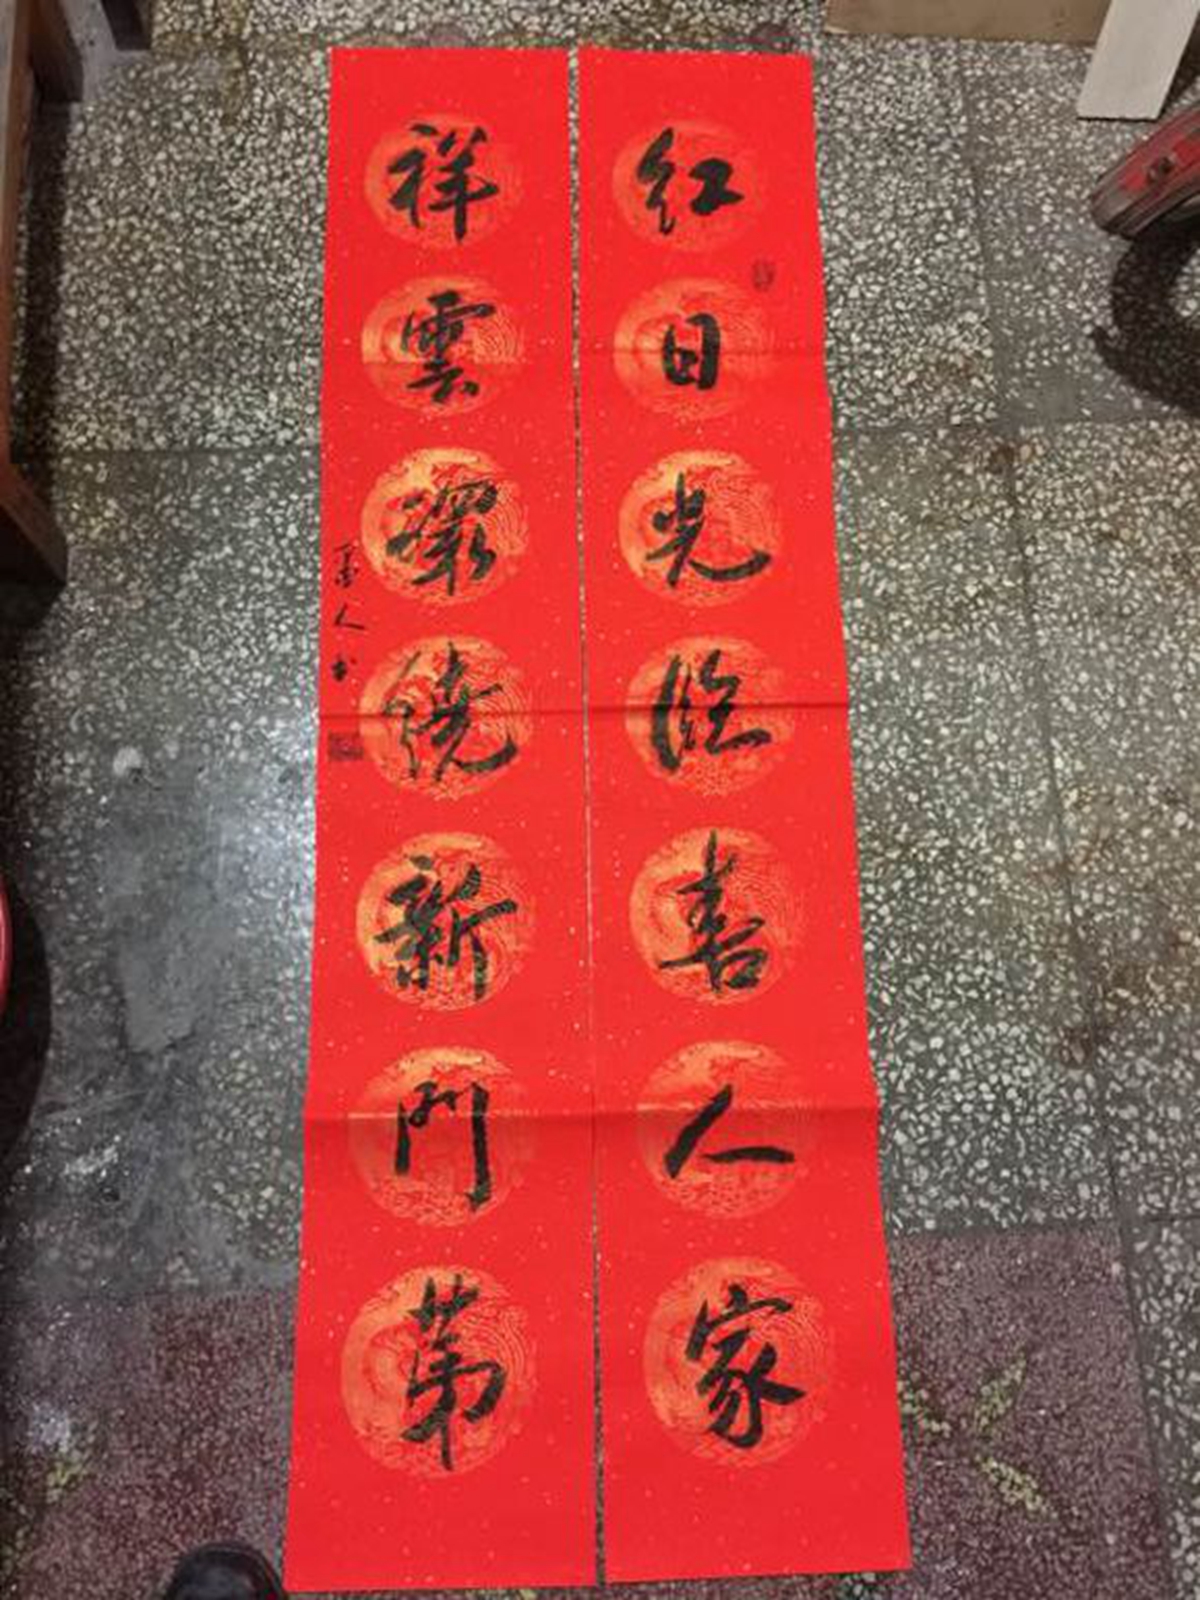 红日光临喜人家
祥雲環繞新門第
墨人书